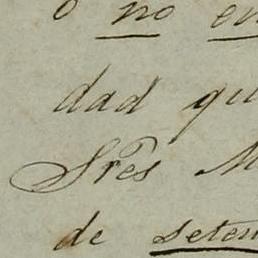 o no en
dad qu
Sres M
de seten